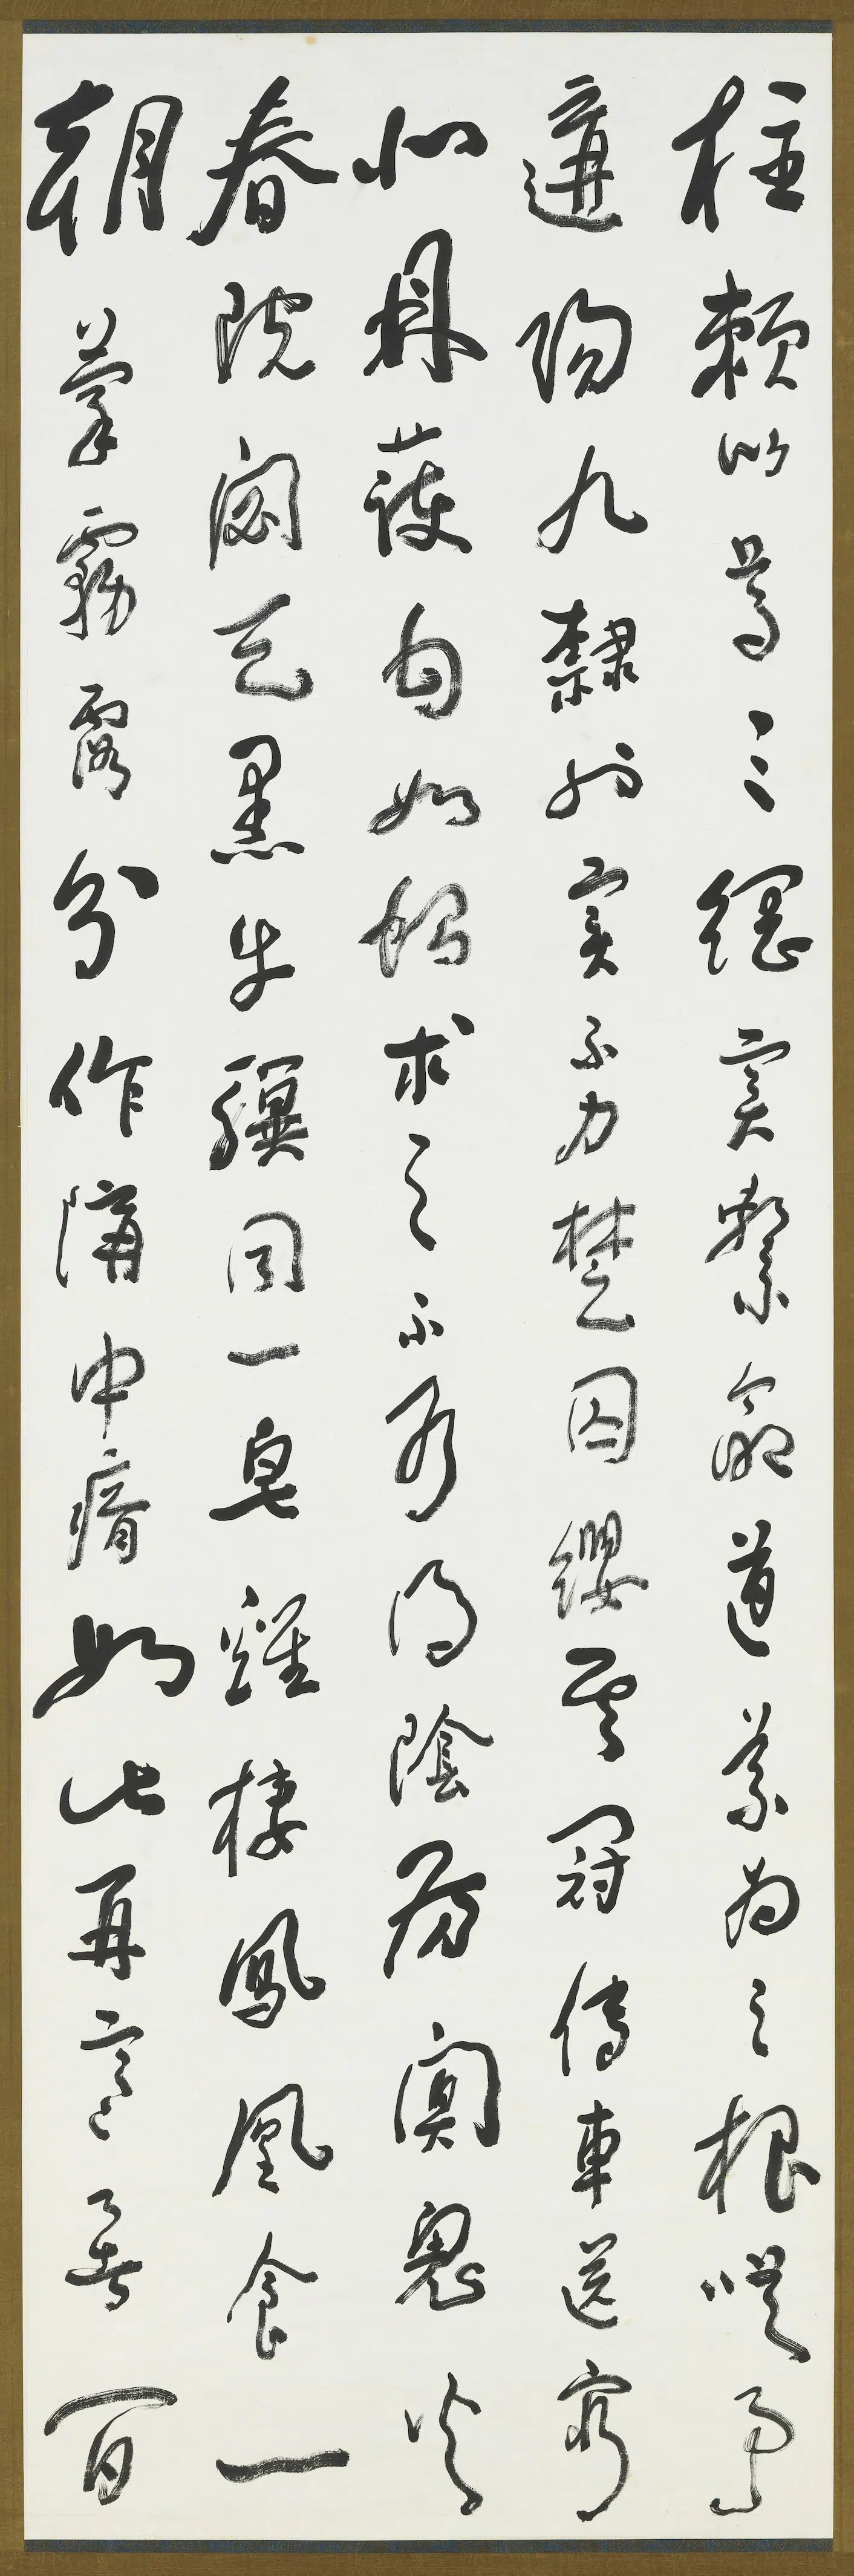 柱賴以尊三綱實繫命道義為之根嗟予
遘陽九隸也實不力楚囚纓其冠傳車送窮
北鼎鑊甘如飴求之不可得陰房闃鬼火
春院閟天黑牛驥同一皂雞棲鳳凰食一
朝蒙霧露分作溝中瘠如此再寒暑百